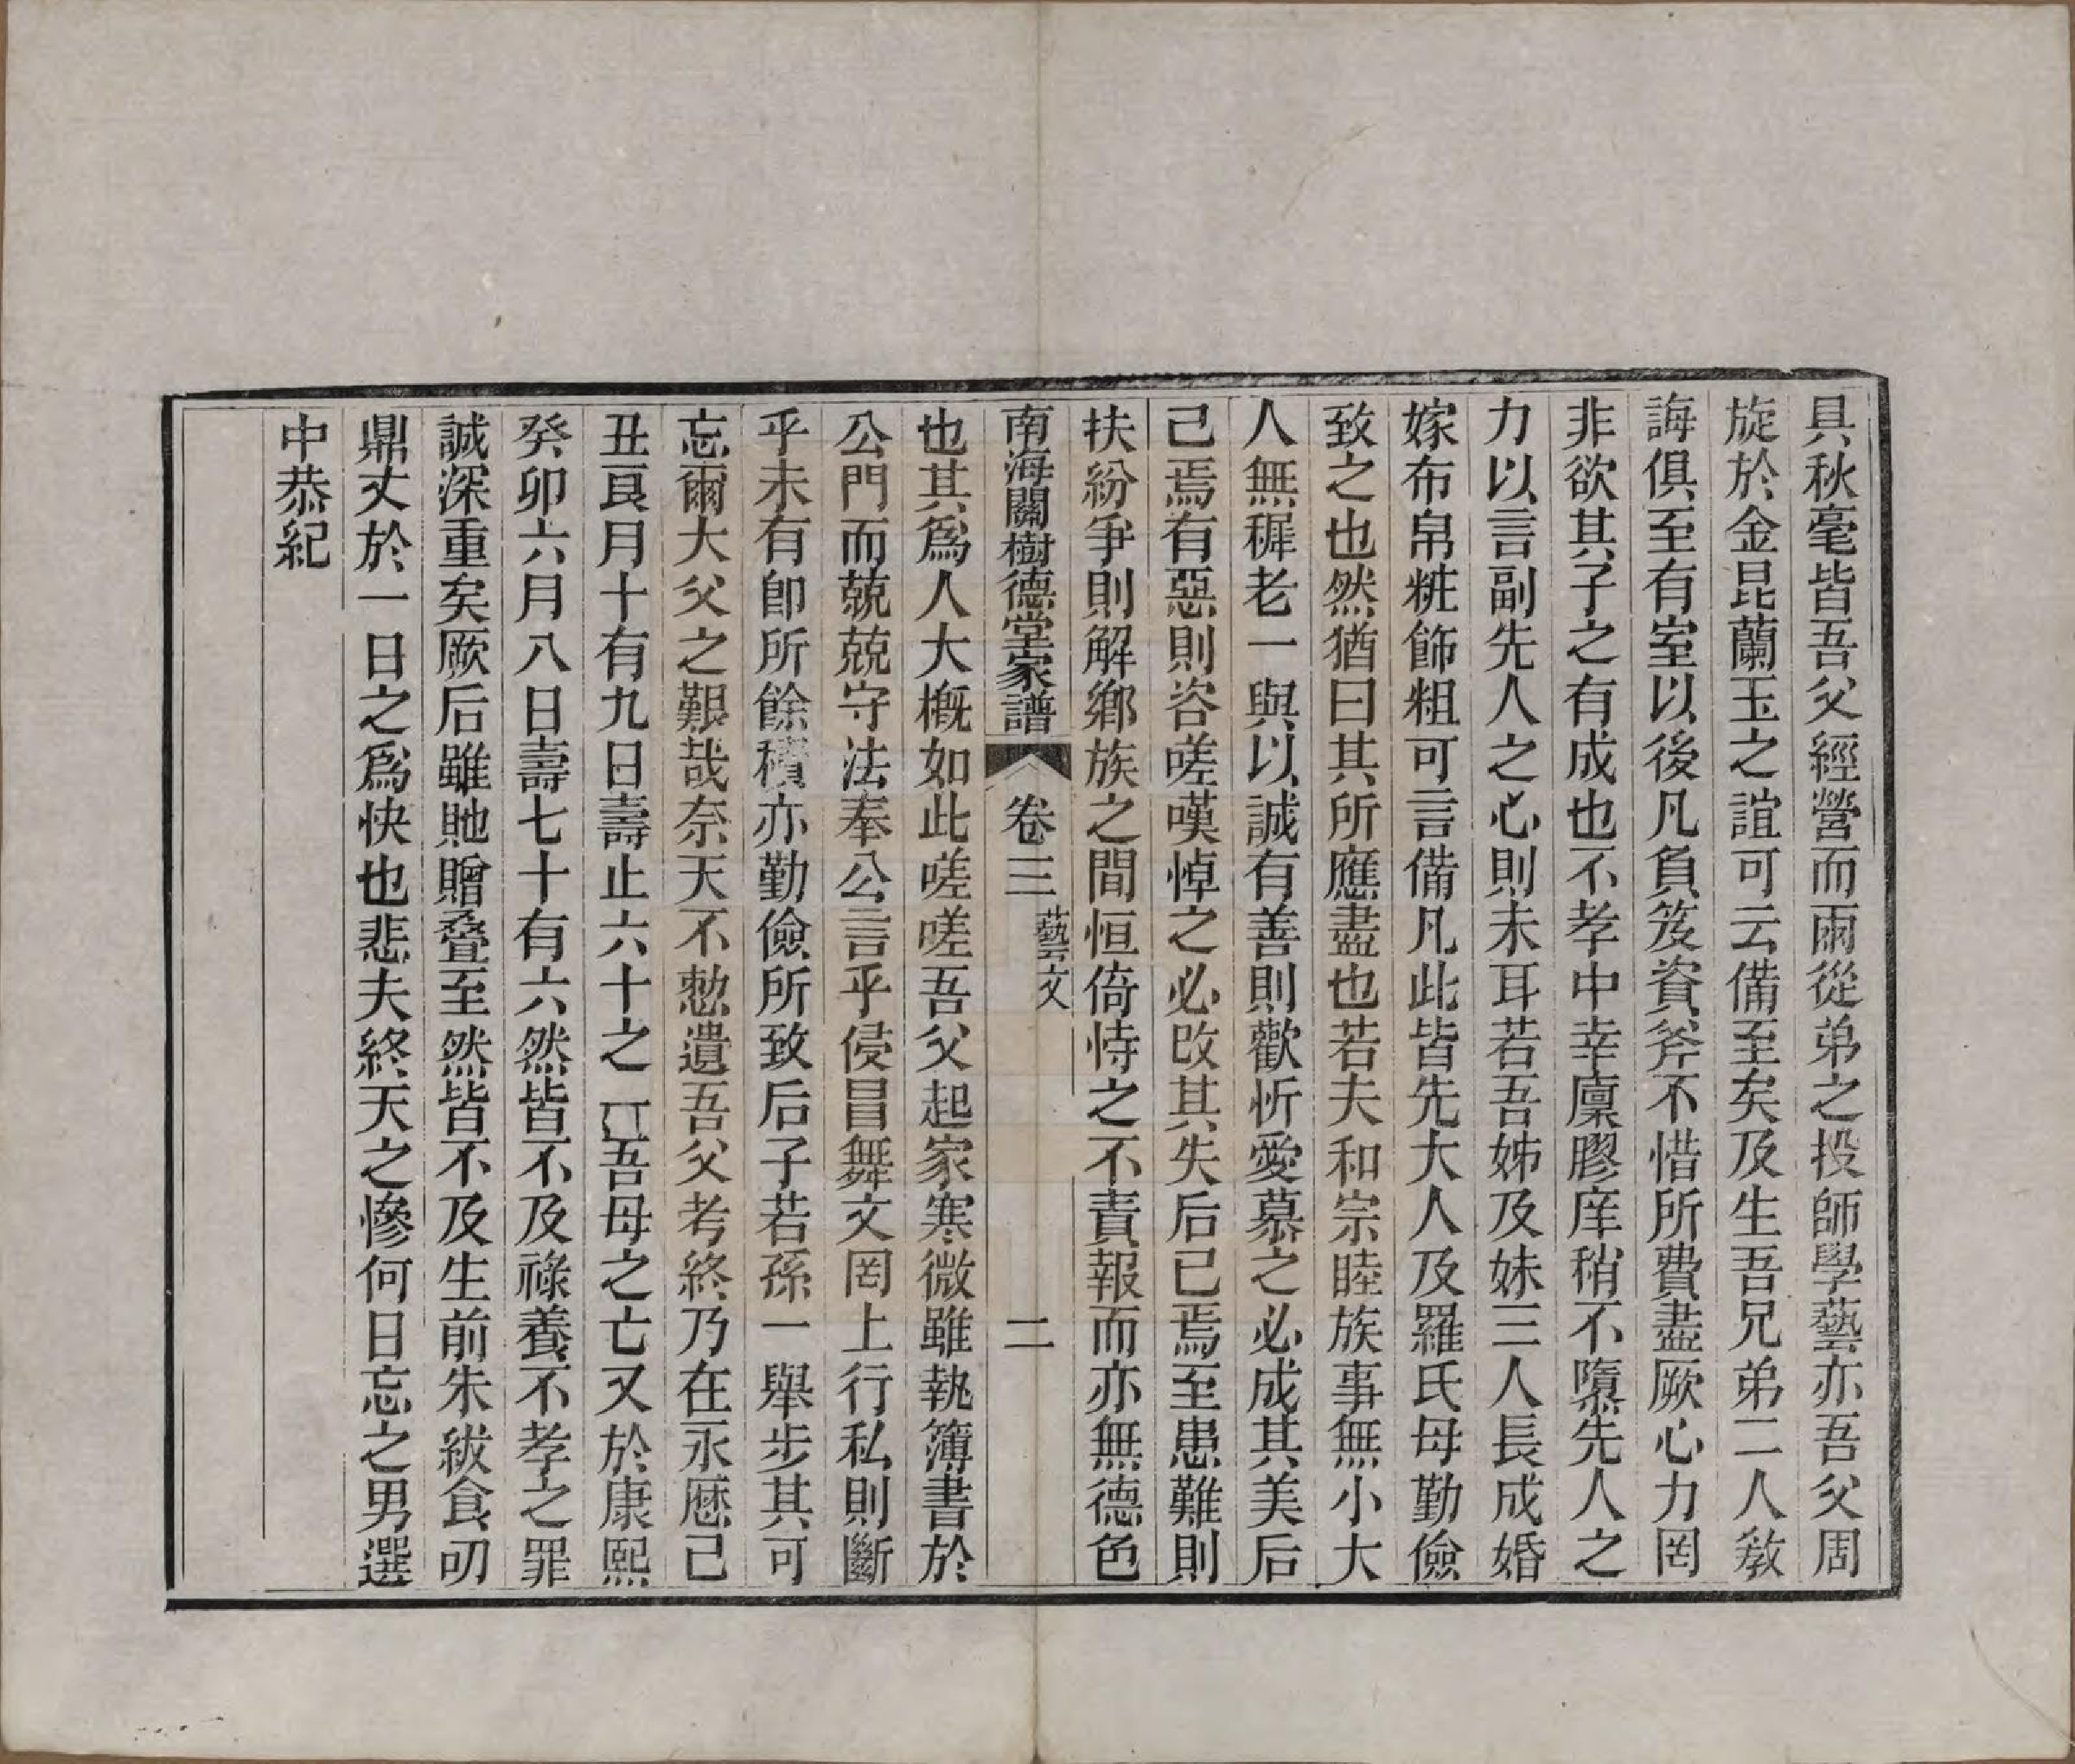 具秋毫皆吾父經營而兩從弟之投師學藝亦吾父周
旋於金昆蘭玉之誼可云備至矣及生吾兄弟二人教
誨俱至有室以後凡負笈資斧不惜所費盡厥心力罔
非欲其子之有成也不孝中幸廩膠庠稍不隳先人之
力以言副先人之心則未耳若吾姊及妹三人長成婚
嫁布帛粧飾粗可言備凡此皆先大人及羅氏母勤儉
致之也然猶曰其所應盡也若夫和宗睦族事無小大
人無穉老一與以誠有善則歡忻愛慕之必成其美后
己焉有惡則咨嗟嘆悼之必改其失后已焉至患難則
扶紛爭則解鄉族之間恒倚恃之不責報而亦無德色
南海關樹德堂家譜 卷三 藝文 二
也其爲人大槪如此嗟嗟吾父起家寒微雖執簿書於
公門而兢兢守法奉公言乎侵冒舞文罔上行私則斷
乎未有卽所餘積亦勤儉所致后子若孫一舉步其可
忘爾大父之艱哉奈天不憖遺吾父考終乃在永厯己
丑良月十有九日壽止六十之吾母之亡又於康熙
癸卯六月八日壽七十有六然皆不及祿養不孝之罪
誠深重矣厥后雖貤贈叠至然皆不及生前朱紱食叨
鼎丈於一日之爲快也悲夫終天之慘何日忘之男選
中恭紀